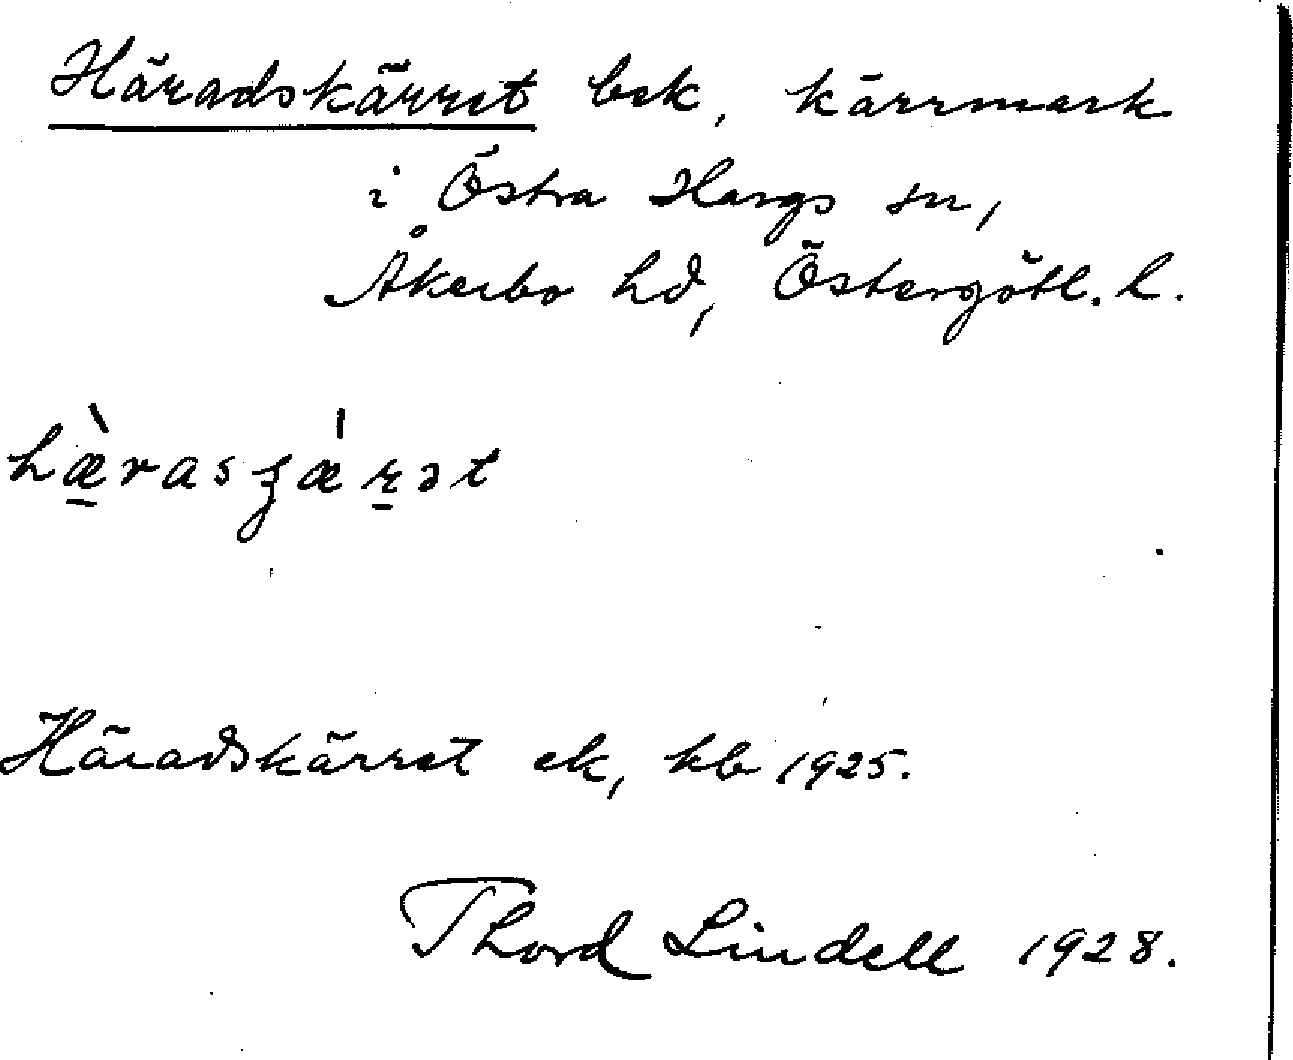 Häradskärret bek, kärrmark
i Östra Hargs sn,
Åkerbo hd, Östergötl. l.
Häradskärret ek, kb 1925.
Thord Lindell 1928.